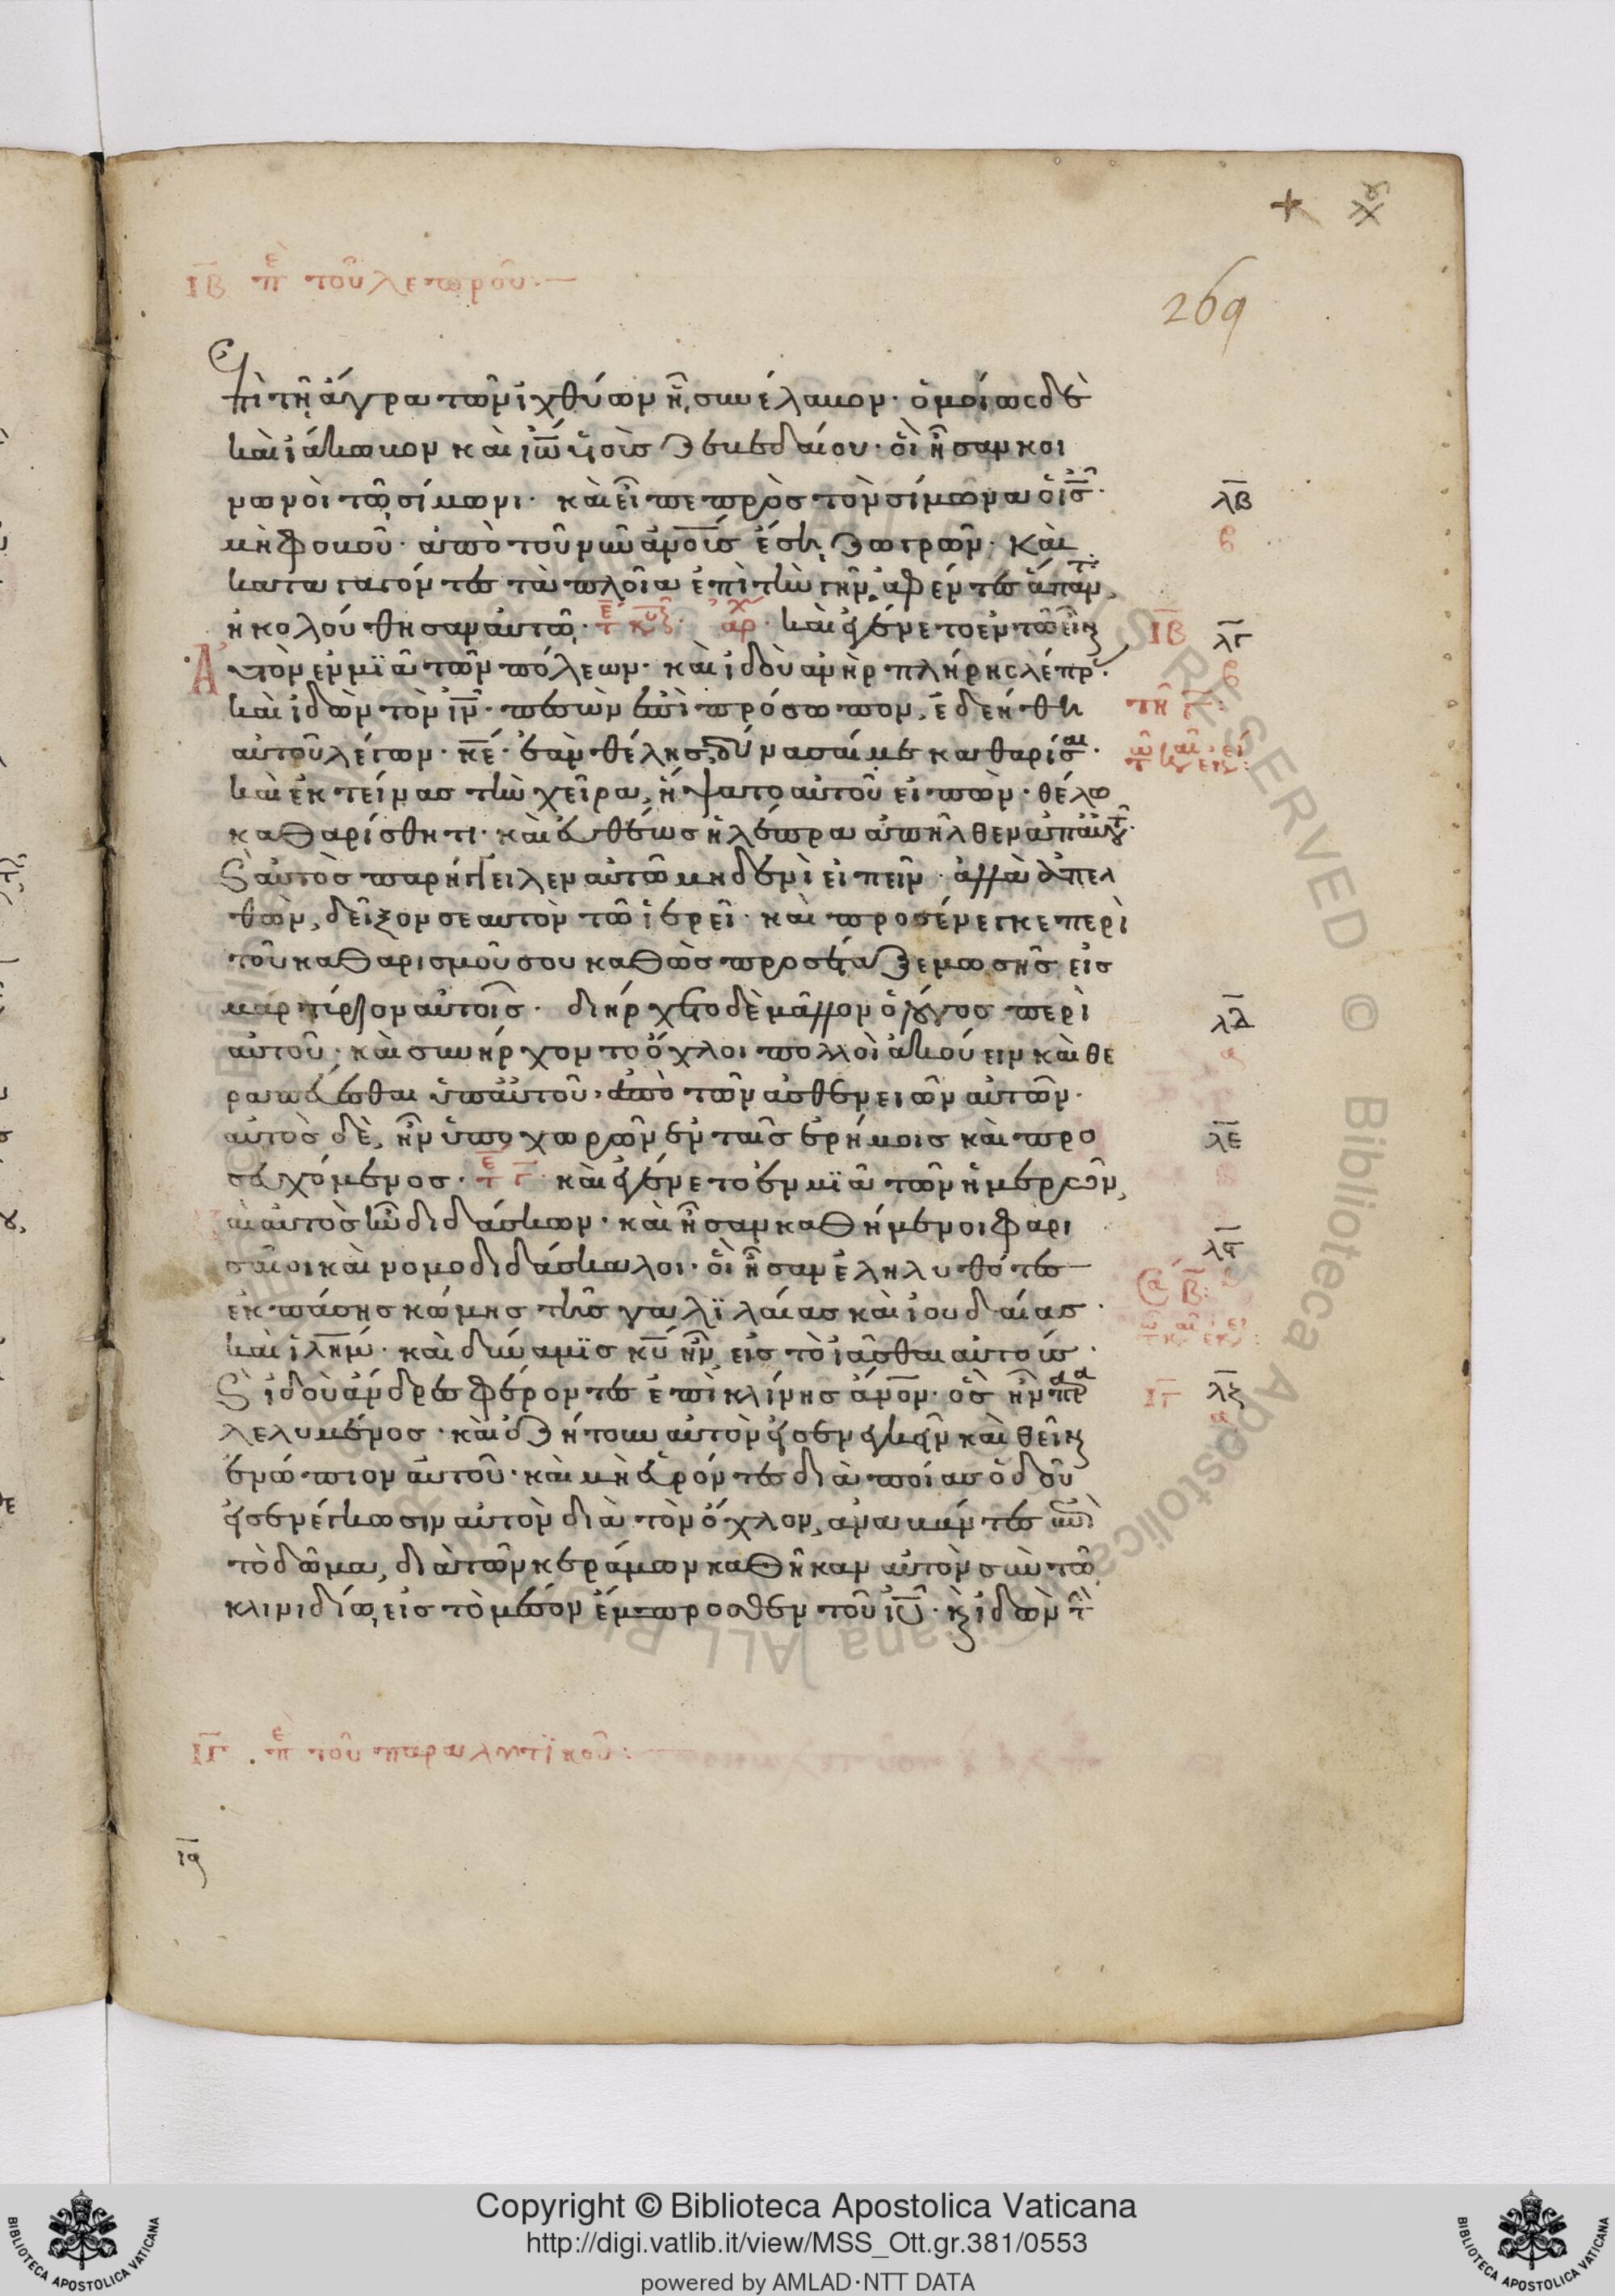 ΙΒ πε τοῦ λεπροῦ
+
269
ἐπὶ τῆ ἄγρα τῶν ἰχθύων ἧ συνέλαβον· ὁμοίως δὲ
καὶ ἰάκωβον καὶ ἰω υἱοὺς ζεβεδαίου· οἳ ἦσαν κοι
νωνοὶ τῶ σίμωνι· καὶ εἶπε πρὸς τὸν σίμωνα ὁ ις·
μὴ φοβοῦ· ἀπὸ τοῦ νῦν ἀνους ἔση ζωγρῶν· καὶ
καταγαγόντες τὰ πλοῖα ἐπὶ τὴν γῆν, ἀφέντες ἅπαντ
ἠκολούθησαν αὐτῶ· καὶ ἐγένετο ἐν τῶ εἶναι
αὐτὸν ἐν μϊᾶ τῶν πόλεων· καὶ ἰδοὺ ἀνὴρ πλήρης λέπρ
καὶ ἰδὼν τὸν ιν· πεσὼν ἐπὶ πρόσωπον, ἐδεήθη
αὐτοῦ λέγων· κε· ἐὰν θέλης, δύνασαί με καθαρίσαι·
καὶ ἐκτείνας τὴν χεῖρα, ἥψατο αὐτοῦ εἰπών· θέλω
καθαρίσθητι· καὶ εὐθέως ἡ λέπρα ἀπῆλθεν ἀπ αὐτοῦ·
καὶ αὐτὸς παρήγγειλεν αὐτῶ μηδενὶ εἰπεῖν· ἀλλὰ ἀπελ
θὼν, δεῖξον σεαυτὸν τῶ ἱερεῖ· καὶ προσένεγκε περὶ
τοῦ καθαρισμοῦ σου καθὼς προσέταξε μωσῆς εἰς
μαρτύριον αὐτοῖς· διήρχετο δὲ μᾶλλον ὁ λόγος περὶ
αὐτοῦ· καὶ συνήρχοντο ὄχλοι πολλοὶ ἀκούειν καὶ θε
ραπεύεσθαι ὑπ αὐτοῦ, ἀπὸ τῶν ἀσθενειῶν αὐτῶν·
αὐτὸς δὲ, ἦν ὑποχωρῶν ἐν ταῖς ἐρήμοις καὶ προ
σευχόμενος· καὶ ἐγένετο ἐν μϊᾶ τῶν ἡμερῶν,
καὶ αὐτὸς ἦν διδάσκων· καὶ ἦσαν καθήμενοι φαρι
σαῖοι καὶ νομοδιδάσκαλοι· οἳ ἦσαν ἐληλυθότες
ἐκ πάσης κώμης τῆς γαλϊλαίας καὶ ἰουδαίας·
καὶ ιλημ· καὶ δύναμϊς κυ ἦν εἰς τὸ ἰᾶσθαι αὐτούς·
καὶ ἰδοὺ ἄνδρες φέροντες ἐπὶ κλίνης ἄνον· ὃς ἦν παρα
λελυμένος· καὶ ἐζήτουν αὐτὸν εἰσενεγκεῖν καὶ θεῖναι
ἐνώπιον αὐτοῦ· καὶ μὴ εὑρόντες διὰ ποίας ὁδοῦ
εἰσενέγκωσιν αὐτὸν διὰ τὸν ὄχλον, ἀναβάντες ἐπὶ
τὸ δῶμα, διὰ τῶν κεράμων καθῆκαν αὐτὸν σὺν τῶ
κλινιδίω, εἰς τὸ μέσον ἔμπροσθεν τοῦ ιυ· καὶ ἰδὼν τὴ
λβ
ΙΒ λγ
λδ
λε
λς
ΙΓ λζ
ΙΓ πε τοῦ παραλυτϊκοῦ
Copyright © Biblioteca Apostolica Vaticana
http://digi.vatlib.it/view/MSS_Ott.gr.381/0553
powered by AMLAD·NTT DATA
BIBLIOTECA APOSTOLICA VATICANA
BIBLIOTECA APOSTOLICA VATICANA